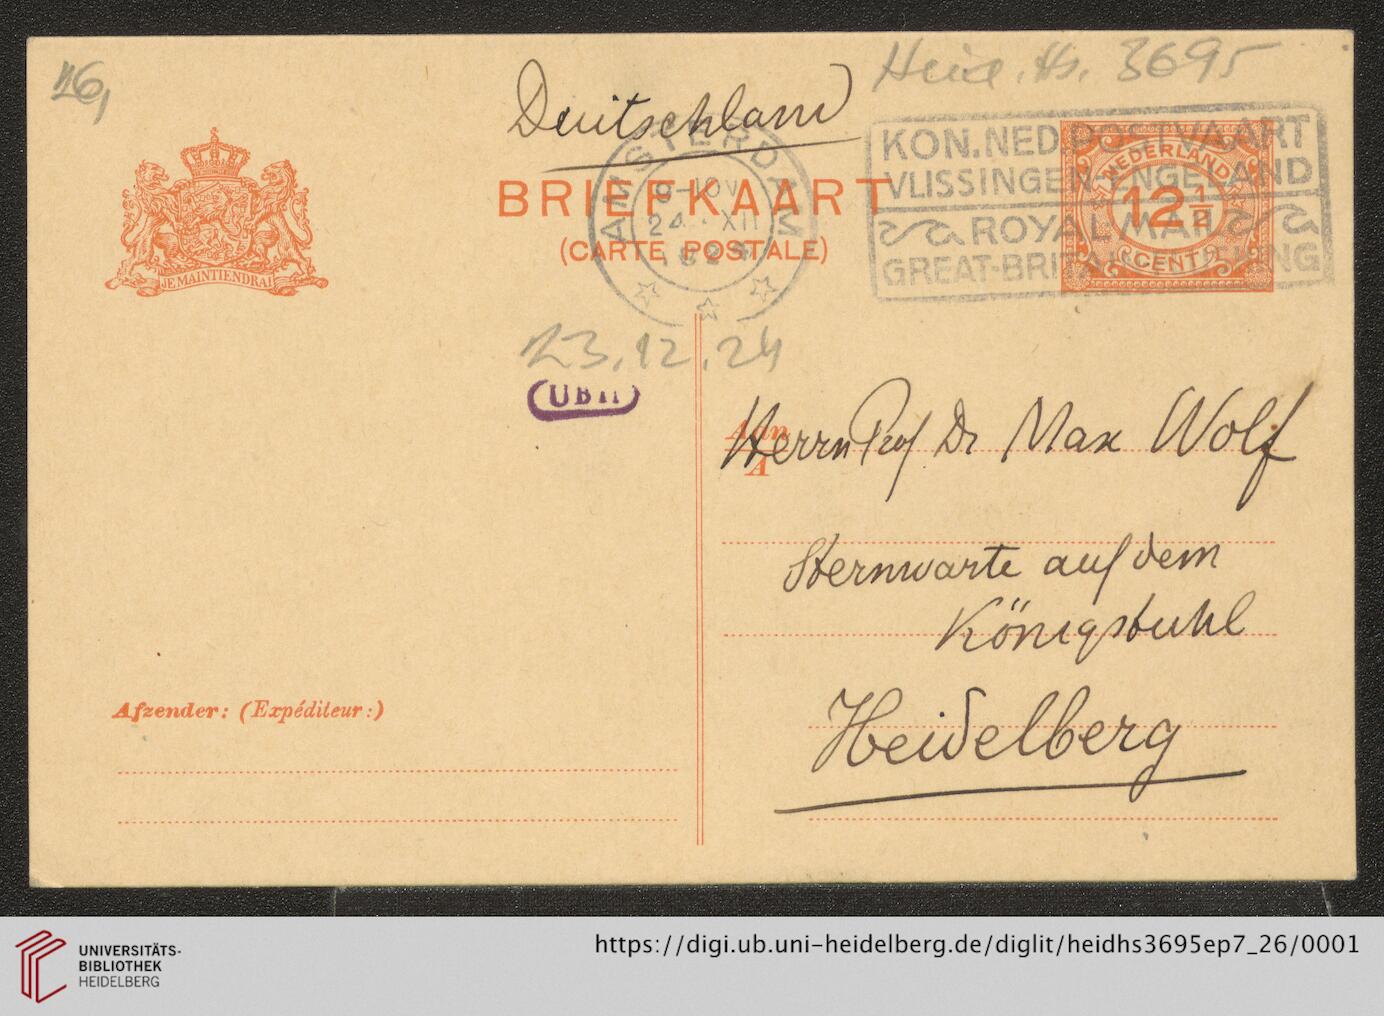 26,
Deutschland
Heid. Hs. 3695
AMSTERDAM
24 XII
1924
KON.NED.POSTVAART
VLISSINGEN-ENGELAND
ROYAL MAIL
GREAT-BRITAIN
NEDERLAND
12½
CENT
BRIEFKAART
(CARTE POSTALE)
JE MAINTIENDRAI
23.12.24
UBH
Aan
A
Herrn Prof Dr Max Wolf
Sternwarte auf dem
Königstuhl
Heidelberg
Afzender: (Expéditeur:)
UNIVERSITÄTS-
BIBLIOTHEK
HEIDELBERG
https://digi.ub.uni-heidelberg.de/diglit/heidhs3695ep7_26/0001